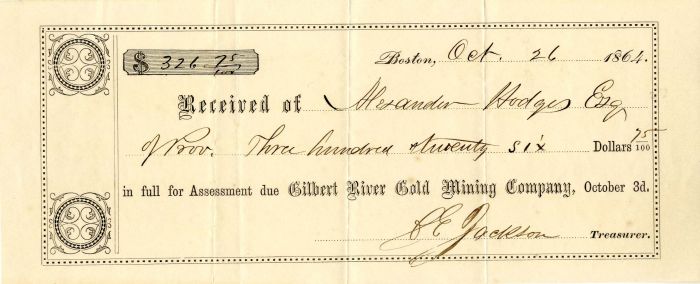 $ 326 75/100
Boston, Oct. 26 1864.
Received of Alexander Hodges Esq
of Prov. Three hundred & twenty six Dollars 75/100
in full for Assessment due Gilbert River Gold Mining Company, October 3d.
C E Jackson Treasurer.